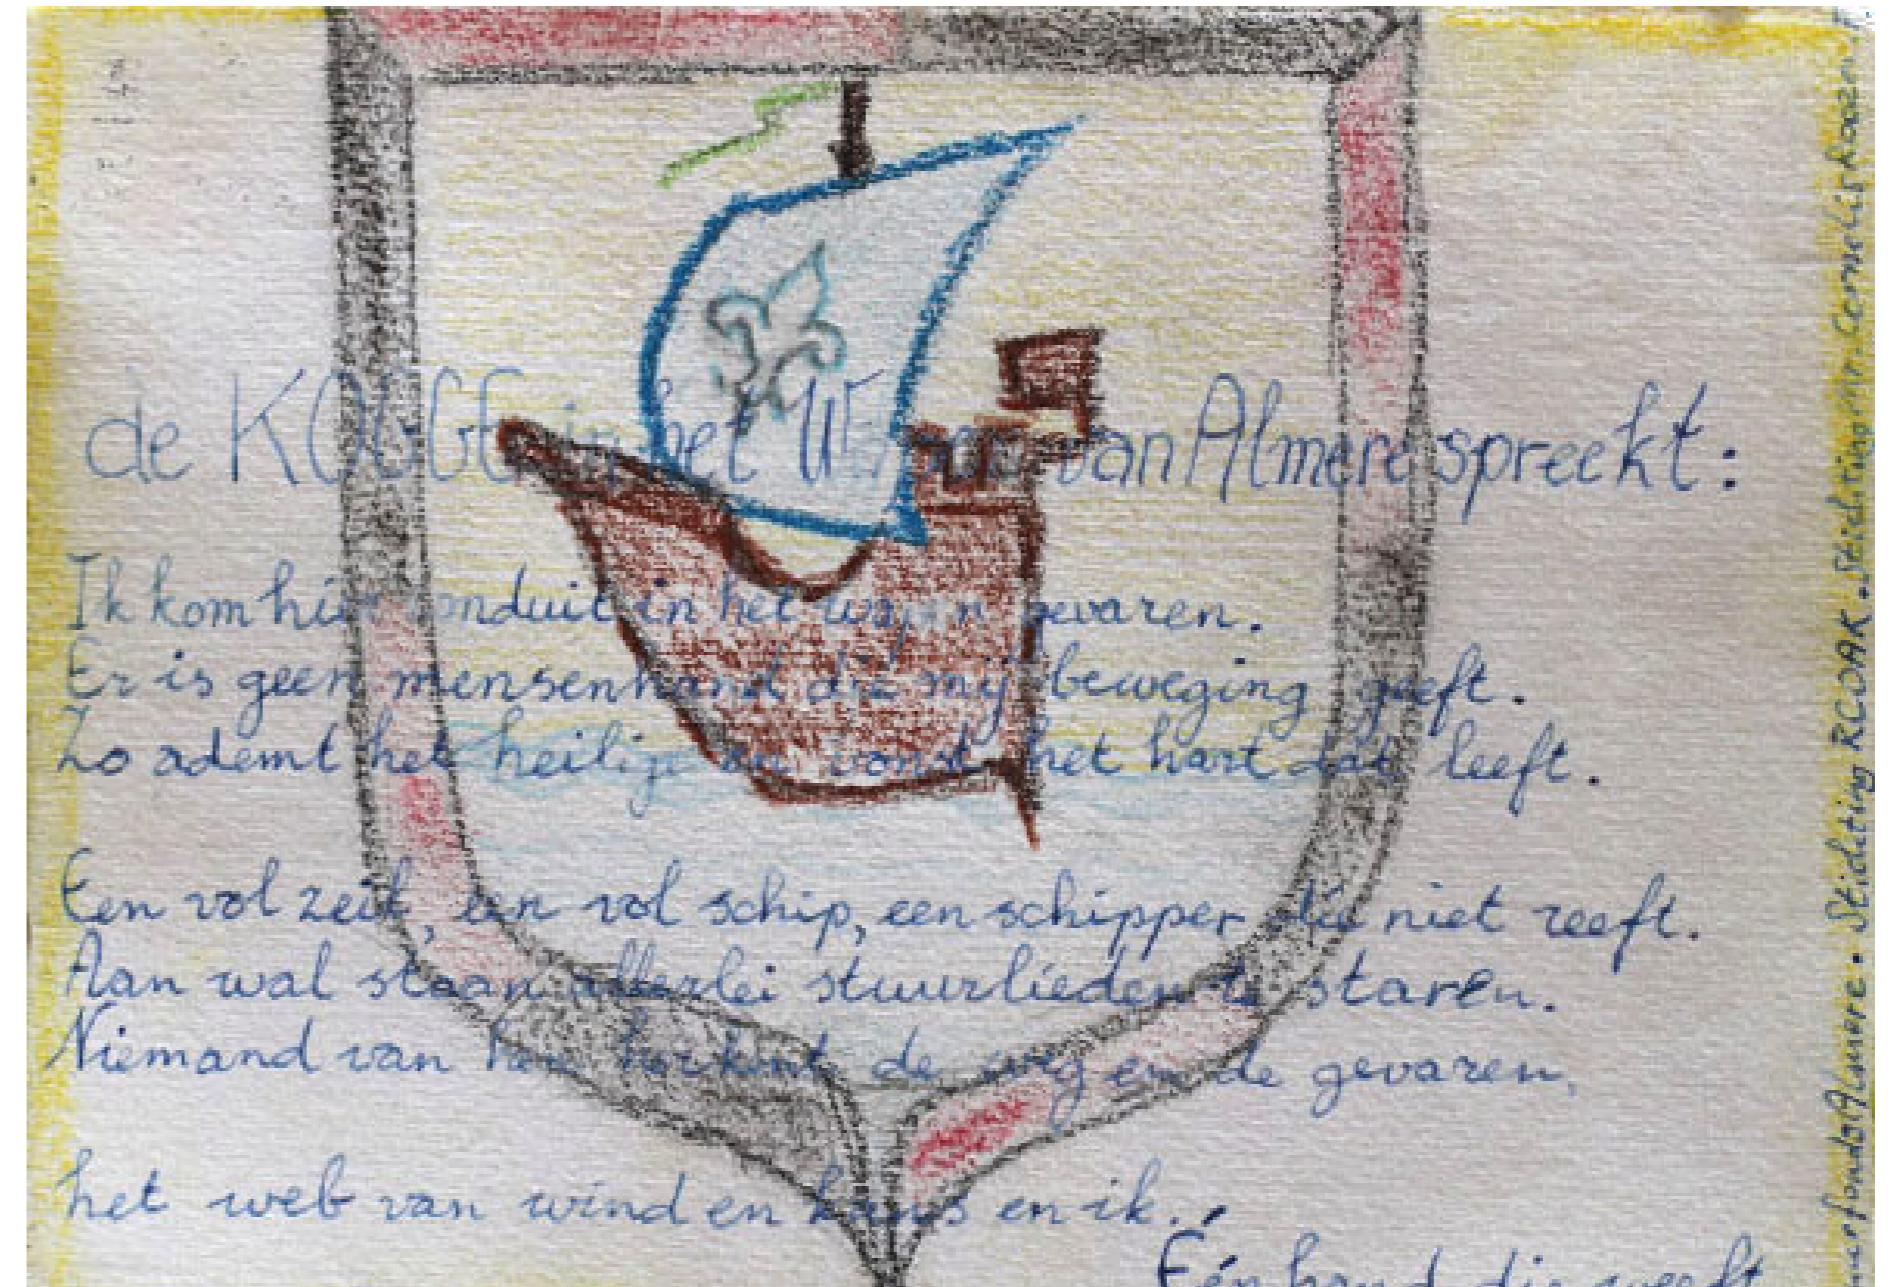 de KOGGE in het Wapen van Almere spreekt:
Ik kom hier ronduit in het wapen gevaren.
Er is geen mensenhand die mij beweging geeft.
Zo ademt het heilige en vonst het hart dat leeft.
Een vol zeil, een vol schip, een schipper die niet reeft.
Aan wal staan allerlei stuurlieden te staren.
Niemand van hen herkent de weg en de gevaren,
het web van wind en kans en ik.
Één hand die weeft
fonds Almere • Stichting RCOAK • Stichting Cornelis